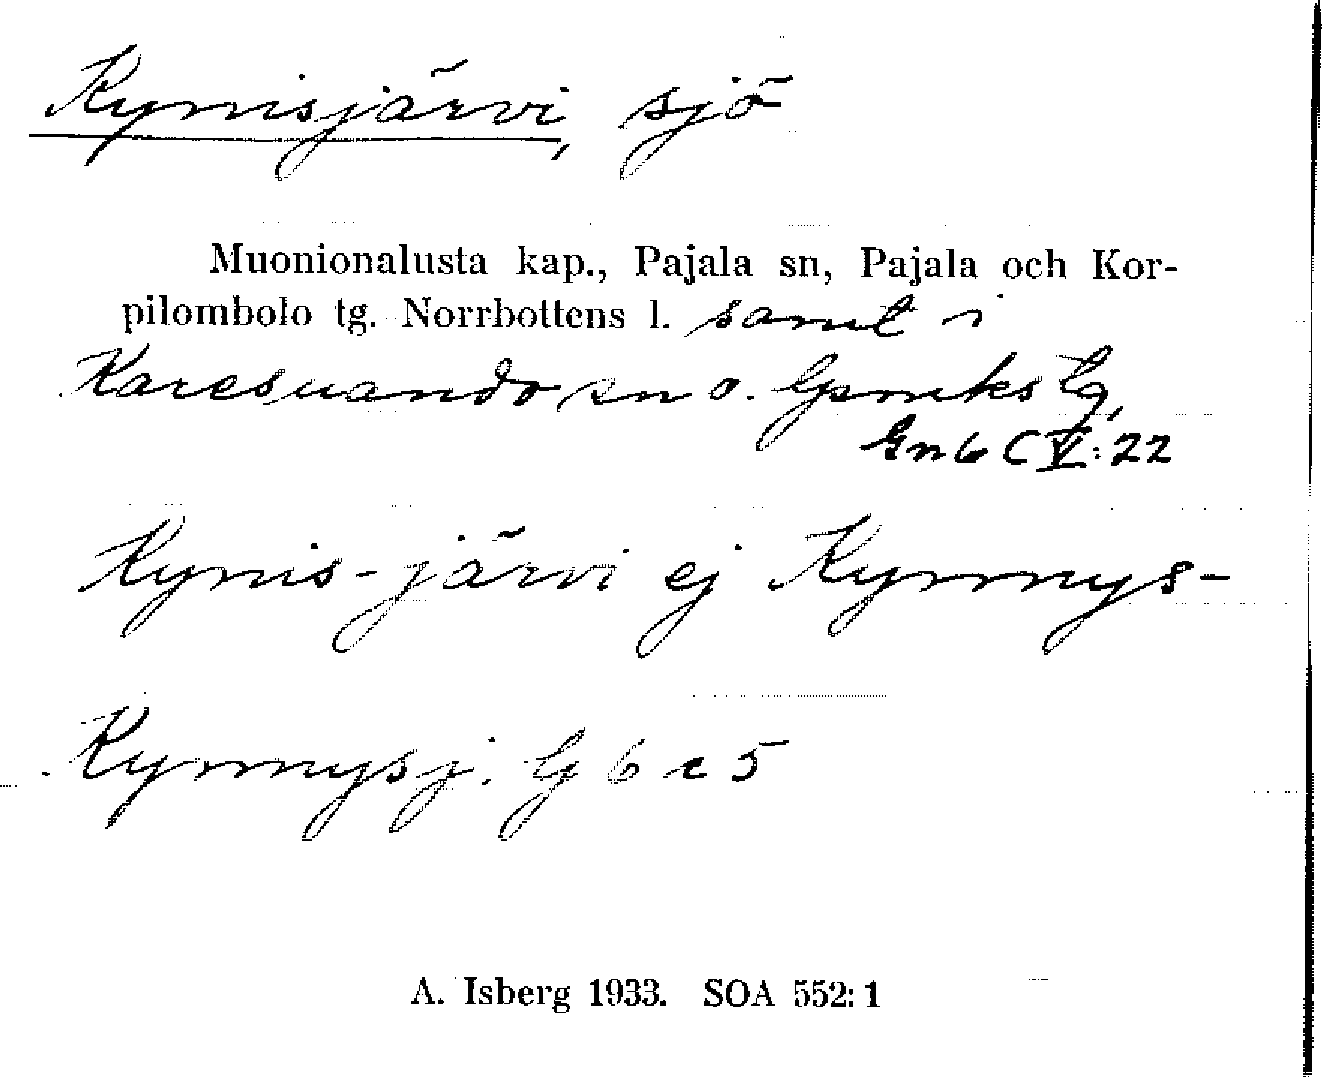 Kymisjärvi, sjö
Muonionalusta kap., Pajala sn, Pajala och Kor-
pilombolo tg. Norrbottens l. samt i
Karesuando sn o. lpmks tg,
Gnb C V:22
Kymis-järvi ej Kymmys-
Kymmysj. G 6 c 5
A. Isberg 1933. SOA 552:1